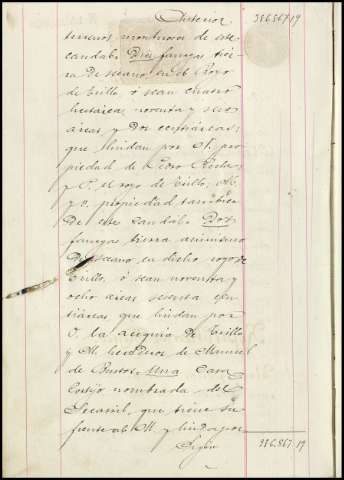 Anterior 386.867,19
terrenos montuosos de este
caudal. Diez fanegas tier-
ra de secano en el Royo
de Trillo ó sean cuatro
hectáreas, noventa y seis
áreas y dos centiáreas,
que lindan por N. pro-
piedad de Pedro
y P. el royo de Trillo, M.
y O. propiedad también
de este caudal. Dos
fanegas tierra asimismo
de secano en dicho royo de
Trillo, ó sean noventa y
ocho áreas sesenta cen-
tiáreas que lindan por
O. la acequia de Trillo
y M. herederos de Manuel
de Bustos. Una Casa
Cortijo nombrada del
que tiene su
frente al M. y linda por
Sigue 386.867,19